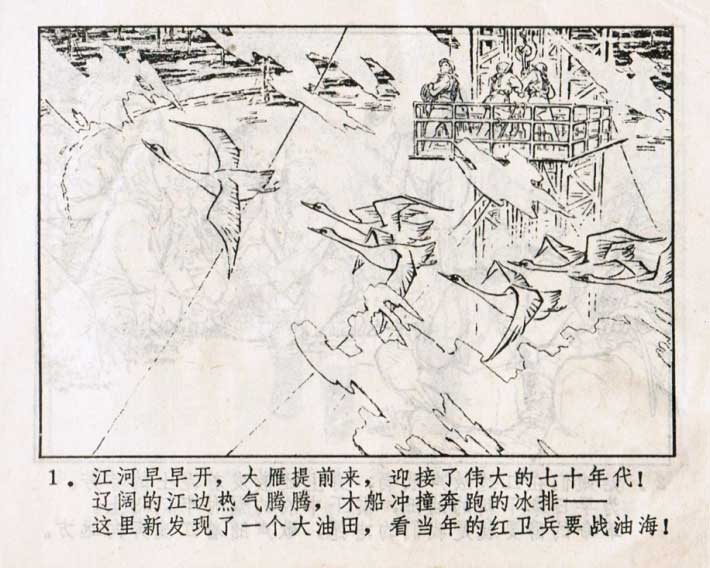 1. 江河早早开，大雁提前来，迎接了伟大的七十年代！
辽阔的江边热气腾腾，木船冲撞奔跑的冰排——
这里新发现了一个大油田，看当年的红卫兵要战油海！